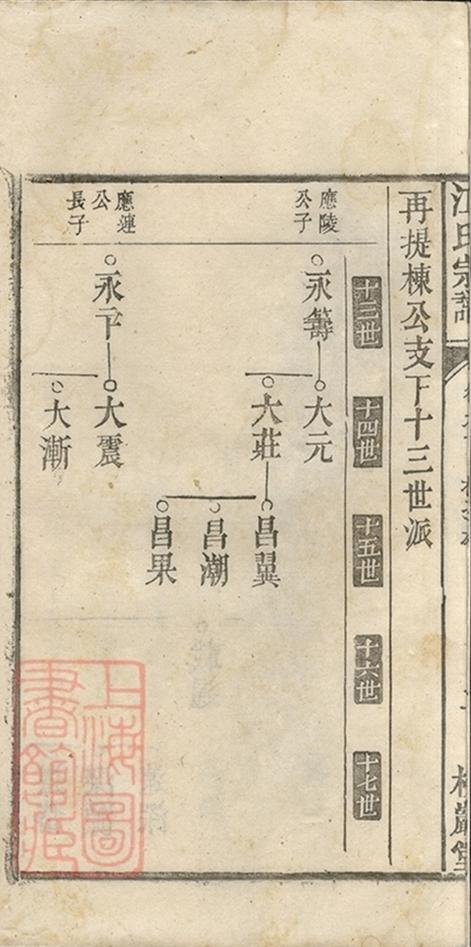 江氏宗譜
再提棟公支下十三世派
十三世
十四世
十五世
十六世
十七世
應陵
公子
永籌
大元
大莊
昌翼
昌潮
昌果
應連
公
長子
大震
大漸
上海圖
書館藏